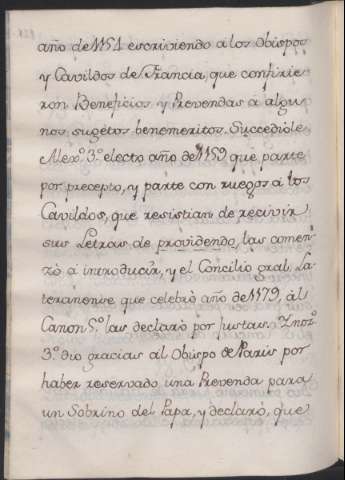 año de 1151 escriviendo a los Obispos
y Cavildos de Francia, que confirie-
ron Beneficios y Prevendas a algu-
nos sugetos benemeritos. Succediole
Alexº 3º electo año de 1159 que parte
por precepto, y parte con ruegos a los
Cavildos, que resistian de recivir
sus Letras de providendo, las comen-
zò a introducir, y el Concilio gral La-
teranense que celebrò año de 1179, al
Canon 5º las declarò por justas. Ynozº
3º dio gracias al Obispo de Paris por
haber reservado una Prevenda para
un Sobrino del Papa, y declarò, que